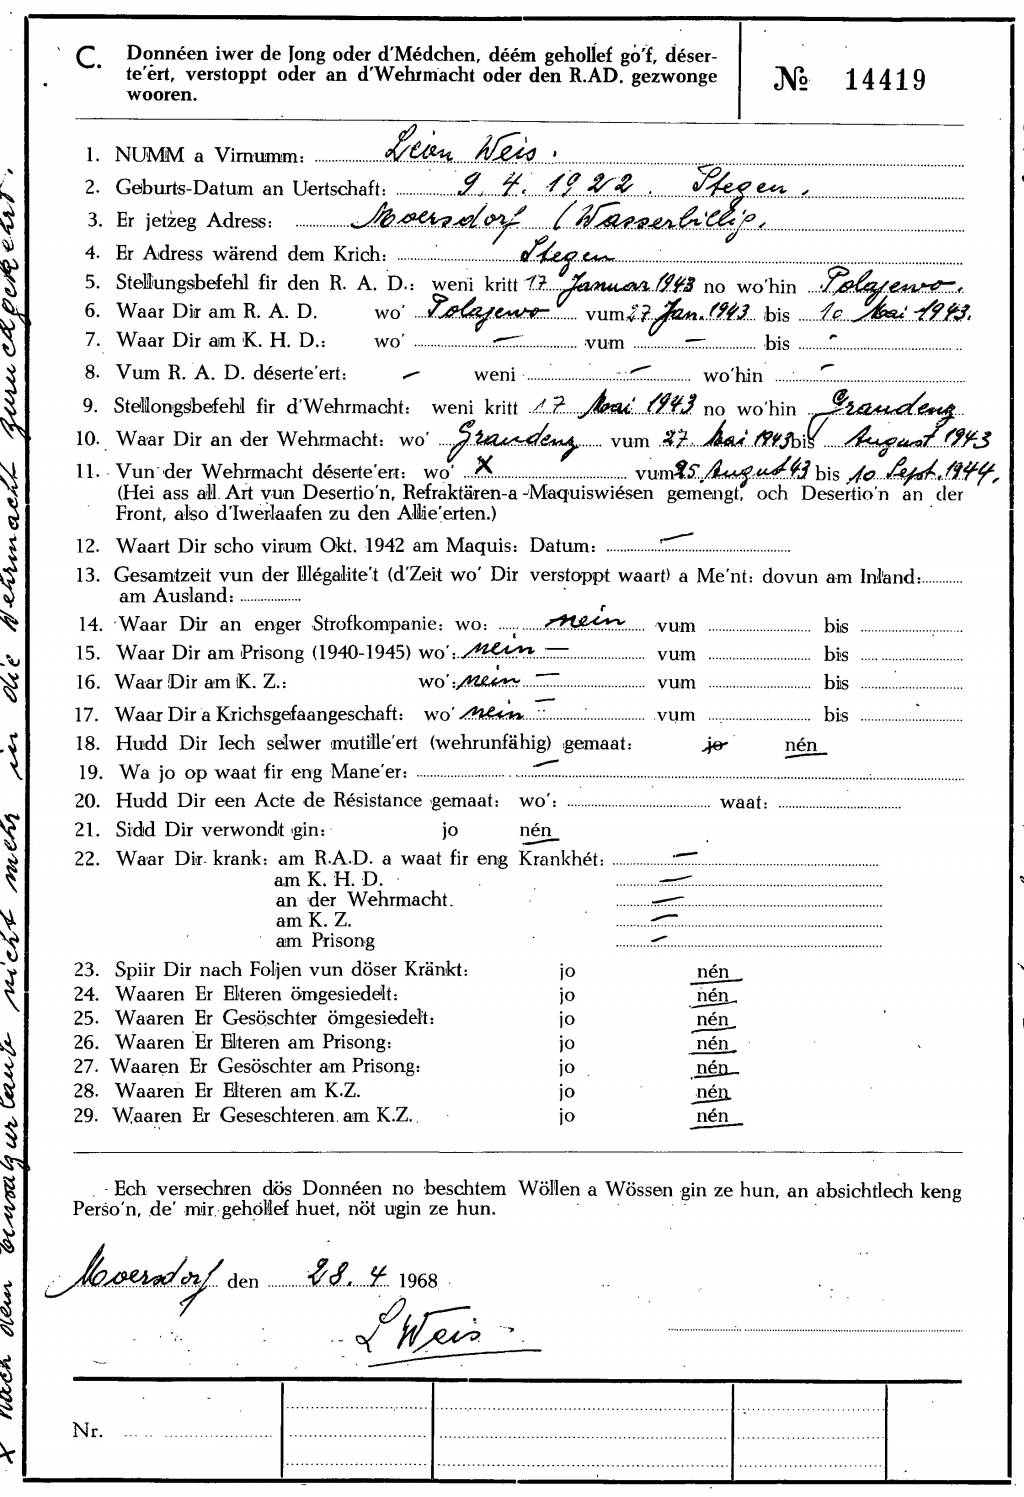 C. Donnéen iwer de Jong oder d'Médchen, déém gehollef go'f, déser-
te'ert, verstoppt oder an d'Wehrmacht oder den R.AD. gezwonge
wooren.
№ 14419
1. NUMM a Virnumm: Léon Weis.
2. Geburts-Datum an Uertschaft: 9. 4. 1922. Stegen.
3. Er jetzeg Adress: Moersdorf (Wasserbillig.
4. Er Adress wärend dem Krich: Stegen
5. Stellungsbefehl fir den R. A. D.: weni kritt 17 Januar 1943 no wo'hin Polajewo.
6. Waar Dir am R. A. D. wo' Polajewo vum 27 Jan. 1943 bis 10 Mai 1943.
7. Waar Dir am K. H. D.: wo' — vum — bis -
8. Vum R. A. D. déserte'ert: — weni — wo'hin —
9. Stellongsbefehl fir d'Wehrmacht: weni kritt 17 Mai 1943 no wo'hin Graudenz
10. Waar Dir an der Wehrmacht: wo' Graudenz vum 27 Mai 1943 bis August 1943
11. Vun der Wehrmacht déserte'ert: wo' X vum 25. August 43 bis 10 Sept. 1944.
(Hei ass all Art vun Desertio'n, Refraktären-a-Maquiswiésen gemengt, och Desertio'n an der
Front, also d'Iwerlaafen zu den Allie'erten.)
12. Waart Dir scho virum Okt. 1942 am Maquis: Datum: —
13. Gesamtzeit vun der Illégalite't (d'Zeit wo' Dir verstoppt waart) a Me'nt: dovun am Inland:
am Ausland:
14. Waar Dir an enger Strofkompanie: wo: nein vum bis
15. Waar Dir am Prisong (1940-1945) wo': nein — vum bis
16. Waar Dir am K. Z.: wo': nein — vum bis
17. Waar Dir a Krichsgefaangeschaft: wo' nein — vum bis
18. Hudd Dir Iech selwer mutille'ert (wehrunfähig) gemaat: jo nén
19. Wa jo op waat fir eng Mane'er: —
20. Hudd Dir een Acte de Résistance gemaat: wo': waat:
21. Sidd Dir verwondt gin: jo nén
22. Waar Dir krank: am R.A.D. a waat fir eng Krankhét: —
am K. H. D. —
an der Wehrmacht. —
am K. Z. —
am Prisong —
23. Spiir Dir nach Foljen vun döser Kränkt: jo nén
24. Waaren Er Elteren ömgesiedelt: jo nén
25. Waaren Er Gesöschter ömgesiedelt: jo nén
26. Waaren Er Elteren am Prisong: jo nén
27. Waaren Er Gesöschter am Prisong: jo nén
28. Waaren Er Elteren am K.Z. jo nén
29. Waaren Er Geseschteren am K.Z. jo nén
Ech versechren dös Donnéen no beschtem Wöllen a Wössen gin ze hun, an absichtlech keng
Perso'n, de' mir gehollef huet, nöt ugin ze hun.
Moersdorf den 28. 4 1968
L Weis
Nr.
X nach dem Einsatzurlaub nicht mehr in die Wehrmacht zurückgekehrt.